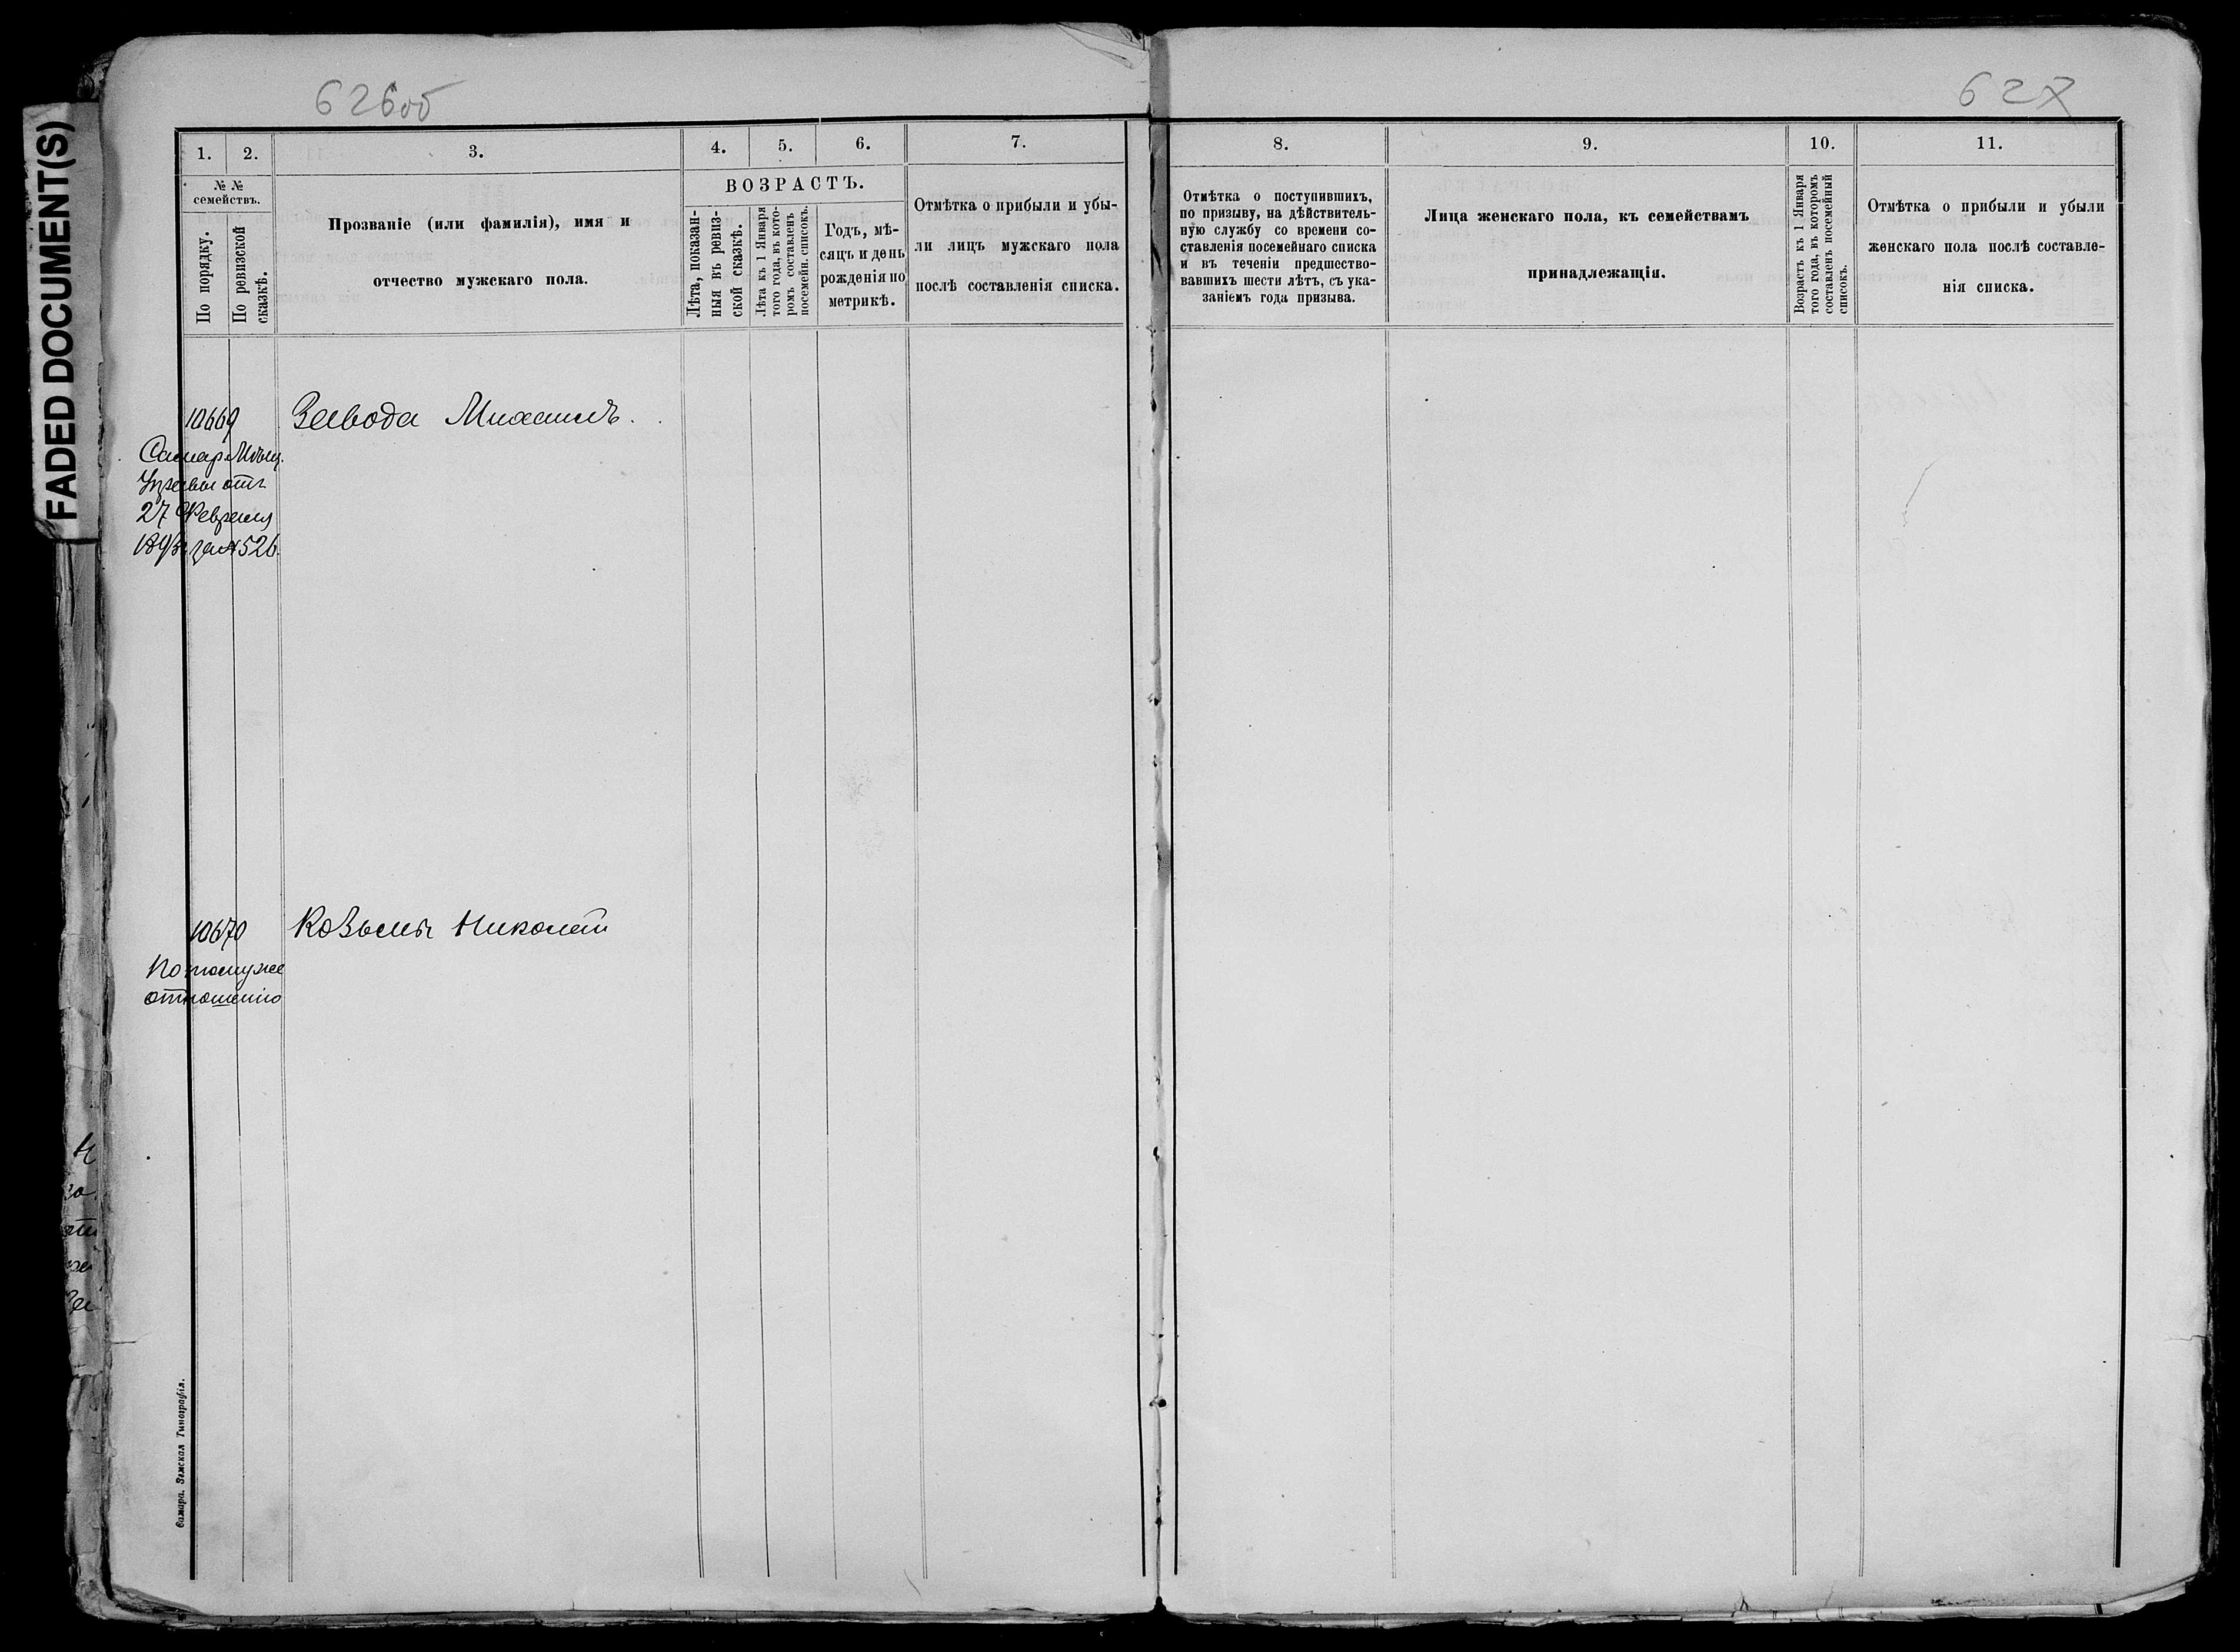 FADED DOCUMENT(S)
626об
627
1.
2.
3.
4.
5.
6.
7.
8.
9.
10.
11.
№ №
семействъ.
По порядку.
По ревизской
сказкѣ.
Прозваніе (или фамилія), имя и
отчество мужскаго пола.
ВОЗРАСТЪ.
Лѣта, показан-
ныя въ ревиз-
ской сказкѣ.
Лѣта къ 1 Января
того года, въ кото-
ромъ составленъ
посемейн. списокъ.
Годъ, мѣ-
сяцъ и день
рожденія по
метрикѣ.
Отмѣтка о прибыли и убы-
ли лицъ мужскаго пола
послѣ составленія списка.
Отмѣтка о поступившихъ,
по призыву, на дѣйствитель-
ную службу со времени со-
ставленія посемейнаго списка
и въ теченіи предшество-
вавшихъ шести лѣтъ, съ ука-
заніемъ года призыва.
Лица женскаго пола, къ семействамъ
принадлежащія.
Возрастъ къ 1 Января
того года, въ которомъ
составленъ посемейный
списокъ.
Отмѣтка о прибыли и убыли
женскаго пола послѣ составле-
нія списка.
10669
Завода Михаилъ.
Самар. Мѣщ.
Управы отъ
27 Февраля
за № 526.
10670
Николай
По тому же
отношенію
Самара. Земская Типографія.